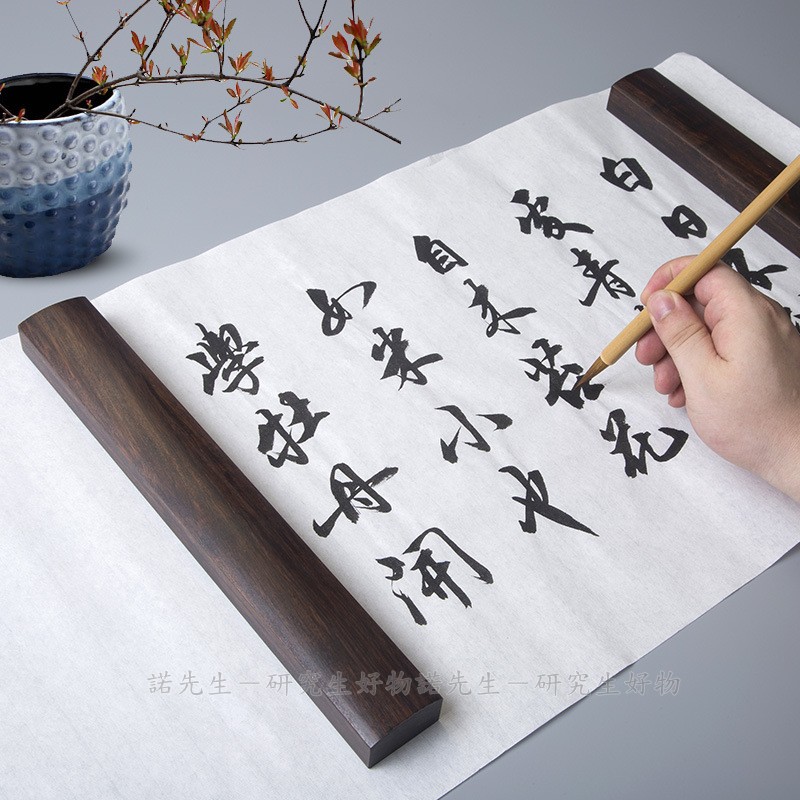 白日不
處青
自來苔花
如米小也
學牡丹開
諾先生－研究生好物諾先生－研究生好物